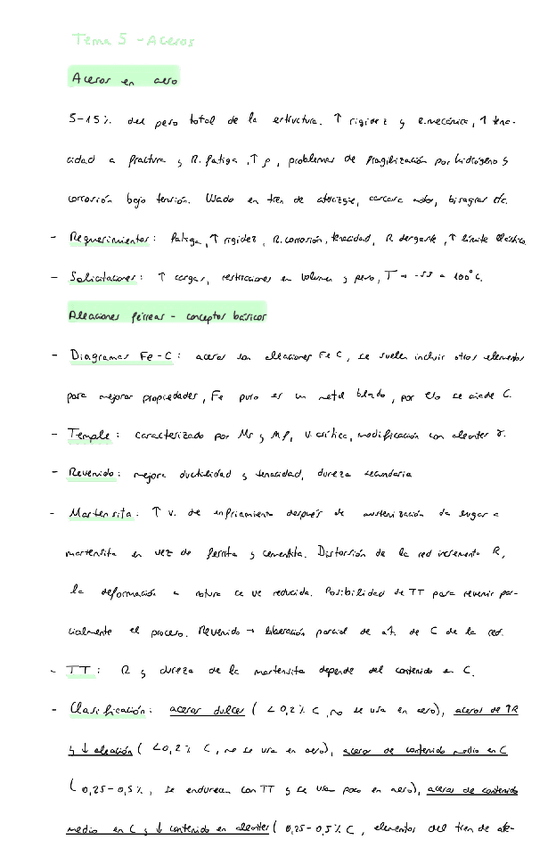 Tema 5 - Aceros
Aceros en aero
5-15% del peso total de la estructura. ↑ rigidez y R.mecánica, ↑ tena-
cidad a fractura y R. fatiga, ↑ ρ, problemas de fragilización por hidrógeno y
corrosión bajo tensión. Usado en tren de aterrizaje, carcasa motor, bisagras etc.
- Requerimientos: fatiga, ↑ rigidez, R. corrosión, tenacidad, R desgaste, ↑ límite elástico
- Solicitaciones: ↑ cargas, restricciones en volumen y peso, T → -55 a 100°C.
Aleaciones férreas - conceptos básicos
- Diagramas Fe-C: aceros son aleaciones Fe C, se suelen incluir otros elementos
para mejorar propiedades, Fe puro es un metal blando, por ello se añade C.
- Temple: caracterizado por Ms y Mf, v. crítica, modificación con aleantes γ.
- Revenido: mejora ductilidad y tenacidad, dureza secundaria
- Martensita: ↑ v. de enfriamiento después de austenización da lugar a
martensita en vez de ferrita y cementita. Distorsión de la red incrementa R,
la deformación a rotura se ve reducida. Posibilidad de TT para revenir par-
cialmente el proceso. Revenido → liberación parcial de at. de C de la red.
- TT: R y dureza de la martensita depende del contenido en C.
- Clasificación: aceros dulces ( <0,2% C, no se usa en aero), aceros de ↑R
y ↓ aleación ( <0,2% C, no se usa en aero), aceros de contenido medio en C
( 0,25-0,5%, se endurecen con TT y se usan poco en aero), aceros de contenido
medio en C y ↓ contenido en aleantes ( 0,25-0,5% C, elementos del tren de ate-